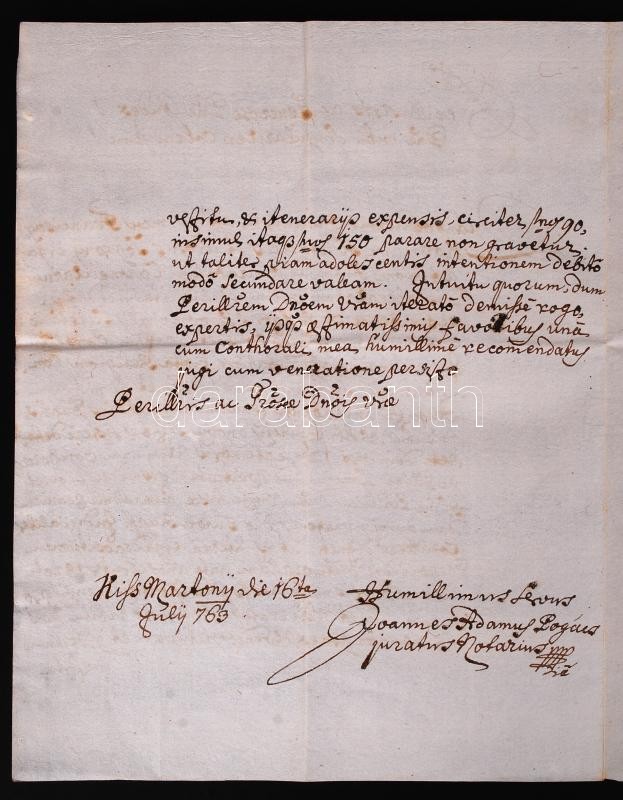 vestitu, & itenerarijs expensis, circiter fnos 90,
insimul itaqs fnos 150 parare non gravetur
ut taliter piam adolescentis intentionem debitô
modô Secundare valeam. Intuitu quorum, dum
Perillrem Dnõem Vrãm iteratô demissê rogo,
expertis, æstimatissimis favoribus unâ
cum Conthorali mea humillimê recomendatus,
jugi cum veneratione persisto
Perillris ac Dnõis vræ
Kiss Martony die 16ta
July 763
Humillimus Servus
Joannes Adamus Pogács
juratus Notarius
darabanth